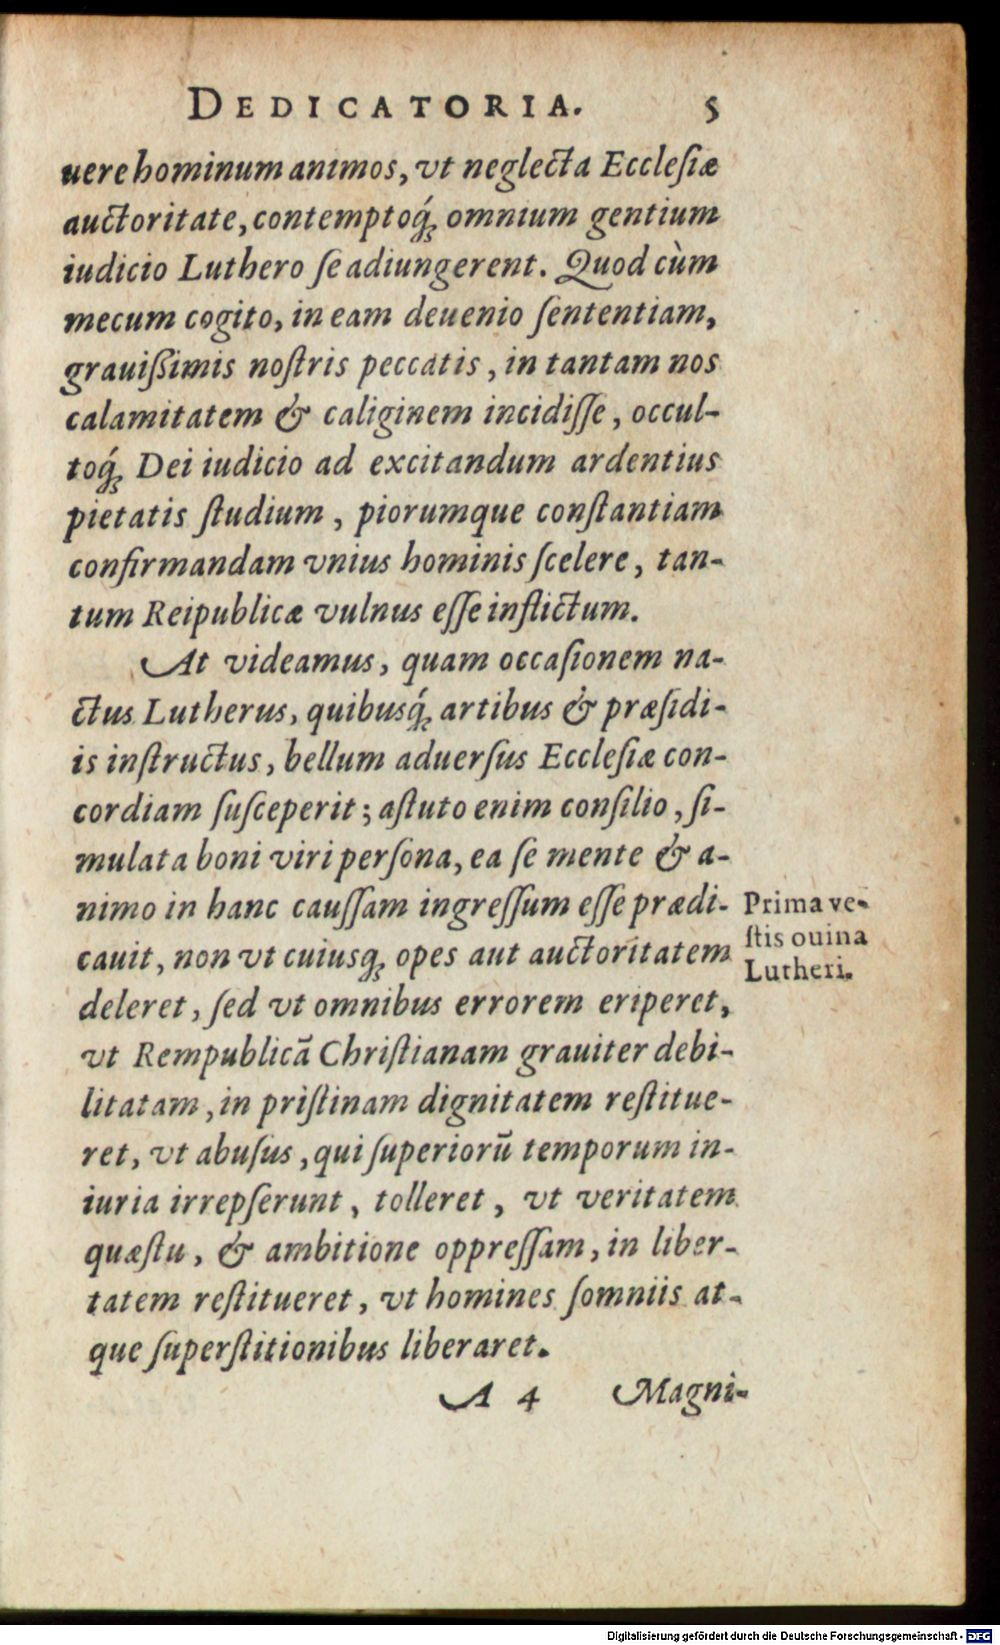 DEDICATORIA. 5
uere hominum animos, vt neglecta Ecclesiæ
auctoritate, contemptoq́; omnium gentium
iudicio Luthero se adiungerent. Quod cùm
mecum cogito, in eam deuenio sententiam,
grauißimis nostris peccatis, in tantam nos
calamitatem & caliginem incidisse, occul-
toq́; Dei iudicio ad excitandum ardentius
pietatis studium, piorumque constantiam
confirmandam vnius hominis scelere, tan-
tum Reipublicæ vulnus esse inflictum.
At videamus, quam occasionem na-
ctus Lutherus, quibusq́; artibus & præsidi-
is instructus, bellum aduersus Ecclesiæ con-
cordiam susceperit; astuto enim consilio, si-
mulata boni viri persona, ea se mente & a-
nimo in hanc caussam ingressum esse prædi-
cauit, non vt cuiusq; opes aut auctoritatem
deleret, sed vt omnibus errorem eriperet,
vt Rempublicā Christianam grauiter debi-
litatam, in pristinam dignitatem restitue-
ret, vt abusus, qui superiorū temporum in-
iuria irrepserunt, tolleret, vt veritatem
quæstu, & ambitione oppressam, in liber-
tatem restitueret, vt homines somniis at-
que superstitionibus liberaret.
Prima ve-
stis ouina
Lutheri.
A 4 Magni-
Digitalisierung gefördert durch die Deutsche Forschungsgemeinschaft - DFG